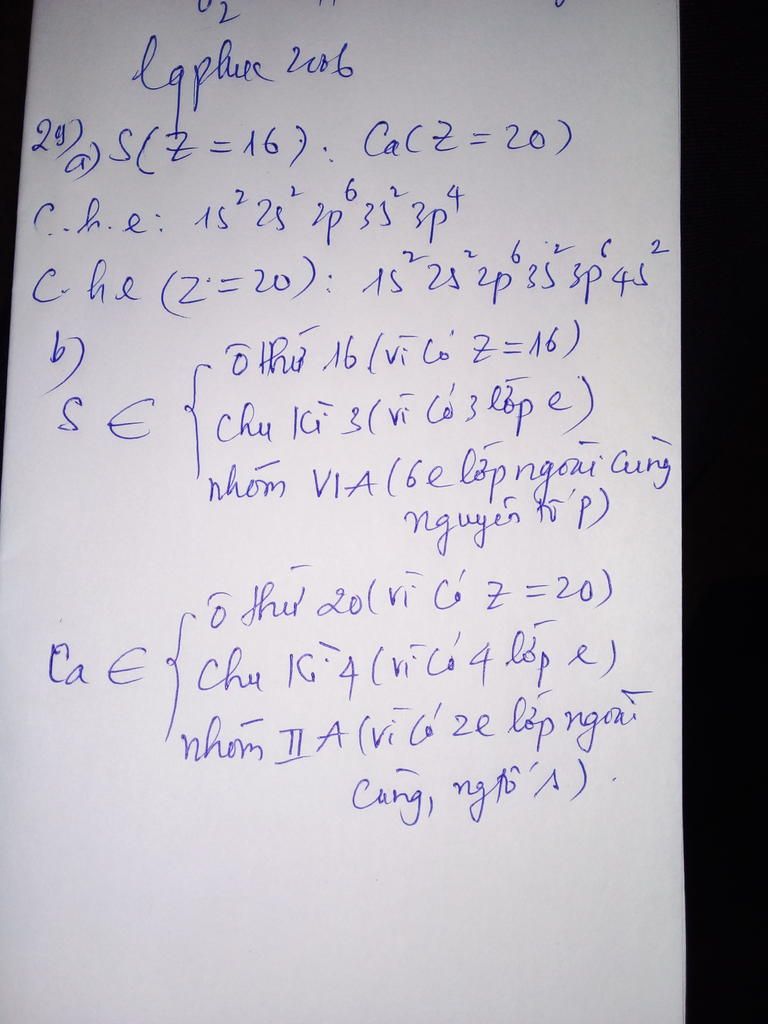 O₂
lgphuc 2006
29)
a) S(Z = 16). Ca(Z = 20)
C.h.e: 1s² 2s² 2p⁶ 3s² 3p⁴
C.h e (Z = 20): 1s² 2s² 2p⁶ 3s² 3p⁶ 4s²
b)
S ∈ { Ô thứ 16 (vì có Z = 16)
Chu Kì 3 (vì có 3 lớp e)
nhóm VIA (6e lớp ngoài cùng
nguyên tố p)
Ca ∈ { Ô thứ 20 (vì có Z = 20)
Chu Kì 4 (vì có 4 lớp e)
nhóm II A (vì có 2e lớp ngoài
cùng, ngtố s).